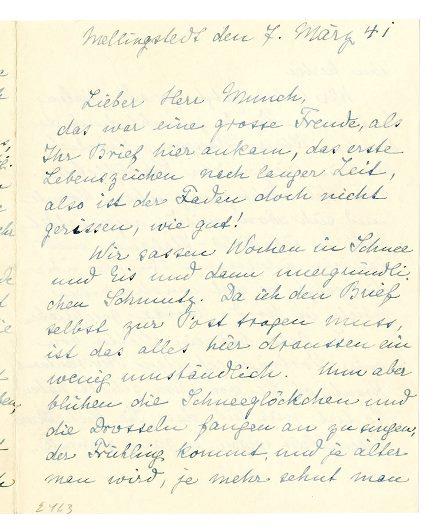 Mellingstedt den 7. März 41
Lieber Herr Munch,
das war eine grosse Freude, als
Ihr Brief hier ankam, das erste
Lebenszeichen nach langer Zeit,
also ist der Faden doch nicht
gerissen, wie gut!
Wir sassen Wochen in Schnee
und Eis und dann unergründli
chen Schmutz. Da ich den Brief
selbst zur Post tragen muss,
ist das alles hier draussen ein
wenig umständlich. Nun aber
blühen die Schneeglöckchen und
die Drosseln fangen an zu singen,
der Frühling kommt, und je älter
man wird, je mehr sehnt man